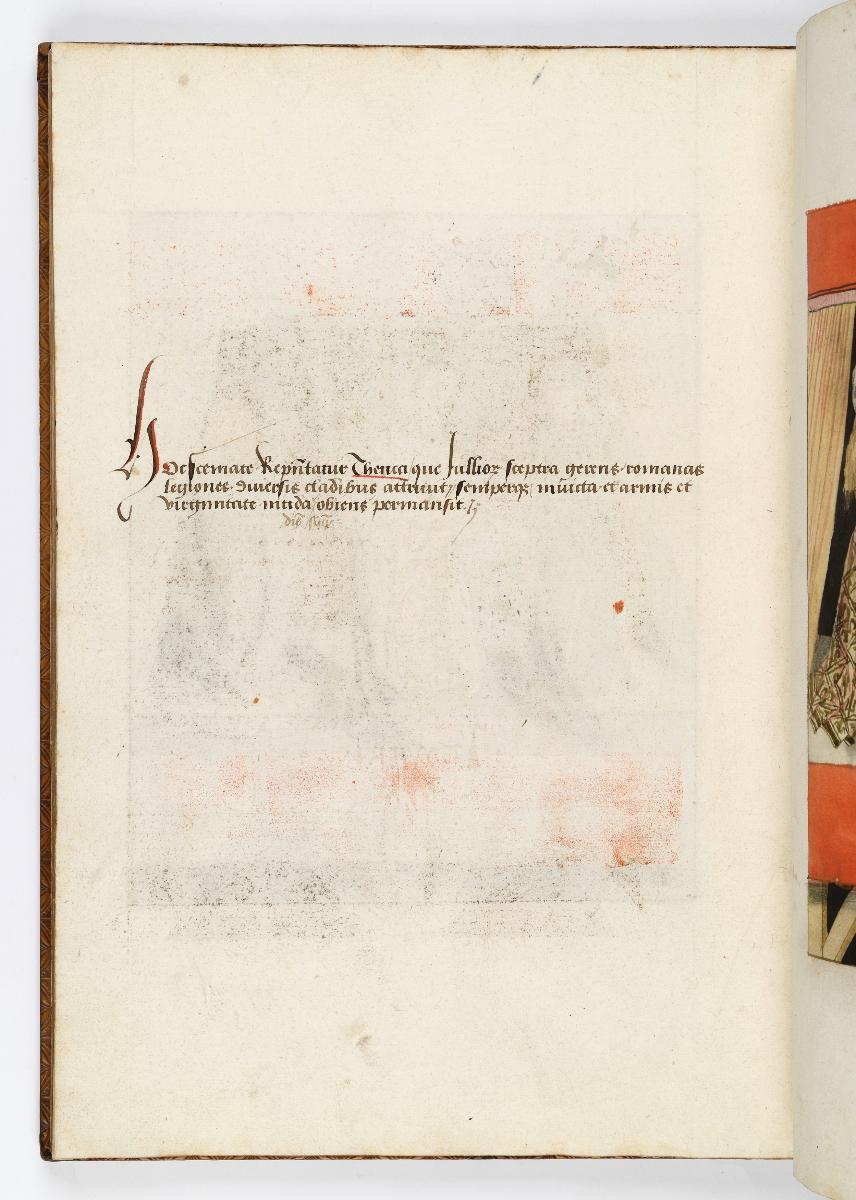 Hoc scemate Repñtatur Theuca que Jllior sceptra gerens romanas
legiones diuersis cladibus attriuit, semperqȝ inuicta et armis et
virginitate nitida obiens permansit.